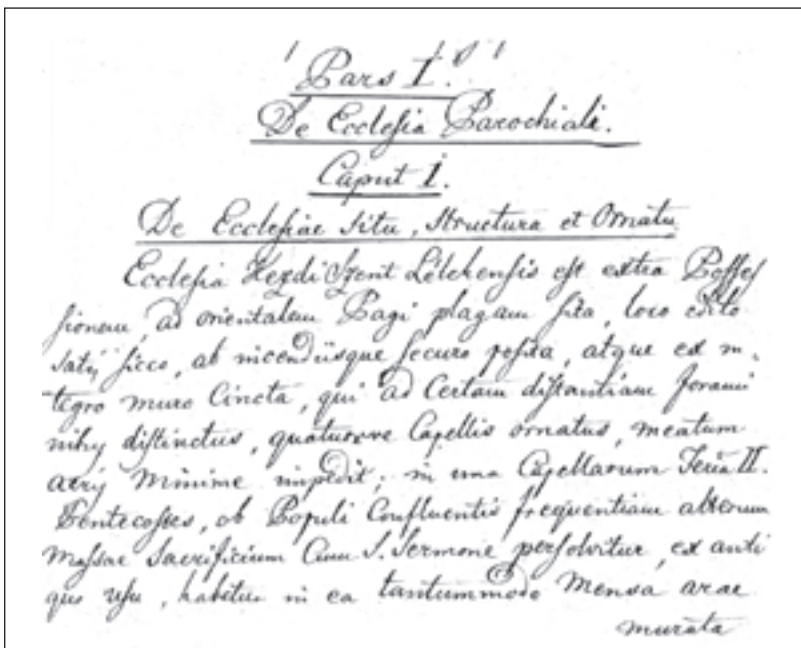 Pars I.
De Ecclesia Parochiali.
Caput I.
De Ecclesiae situ, structura et Ornatu
Ecclesia Kezdi Szent Lélekensis est extra Posses
sionem, ad orientalem Pagi plagam sita, loco edito
satis sicco, ab incendiisque securo posita, atque ex in-
tegro muro Cincta, qui ad Certam distantiam forami
nibus distinctus, quatuorve Capellis ornatus, meatum
aeris minime impedit; in una Capellarum Feria II.
Pentecostes, ob Populi Confluentis frequentiam alterum
Missae Sacrificium Cum S. Sermone persolvitur, ex anti
quo usu, habetur in ea tantummodo Mensa arae
murata